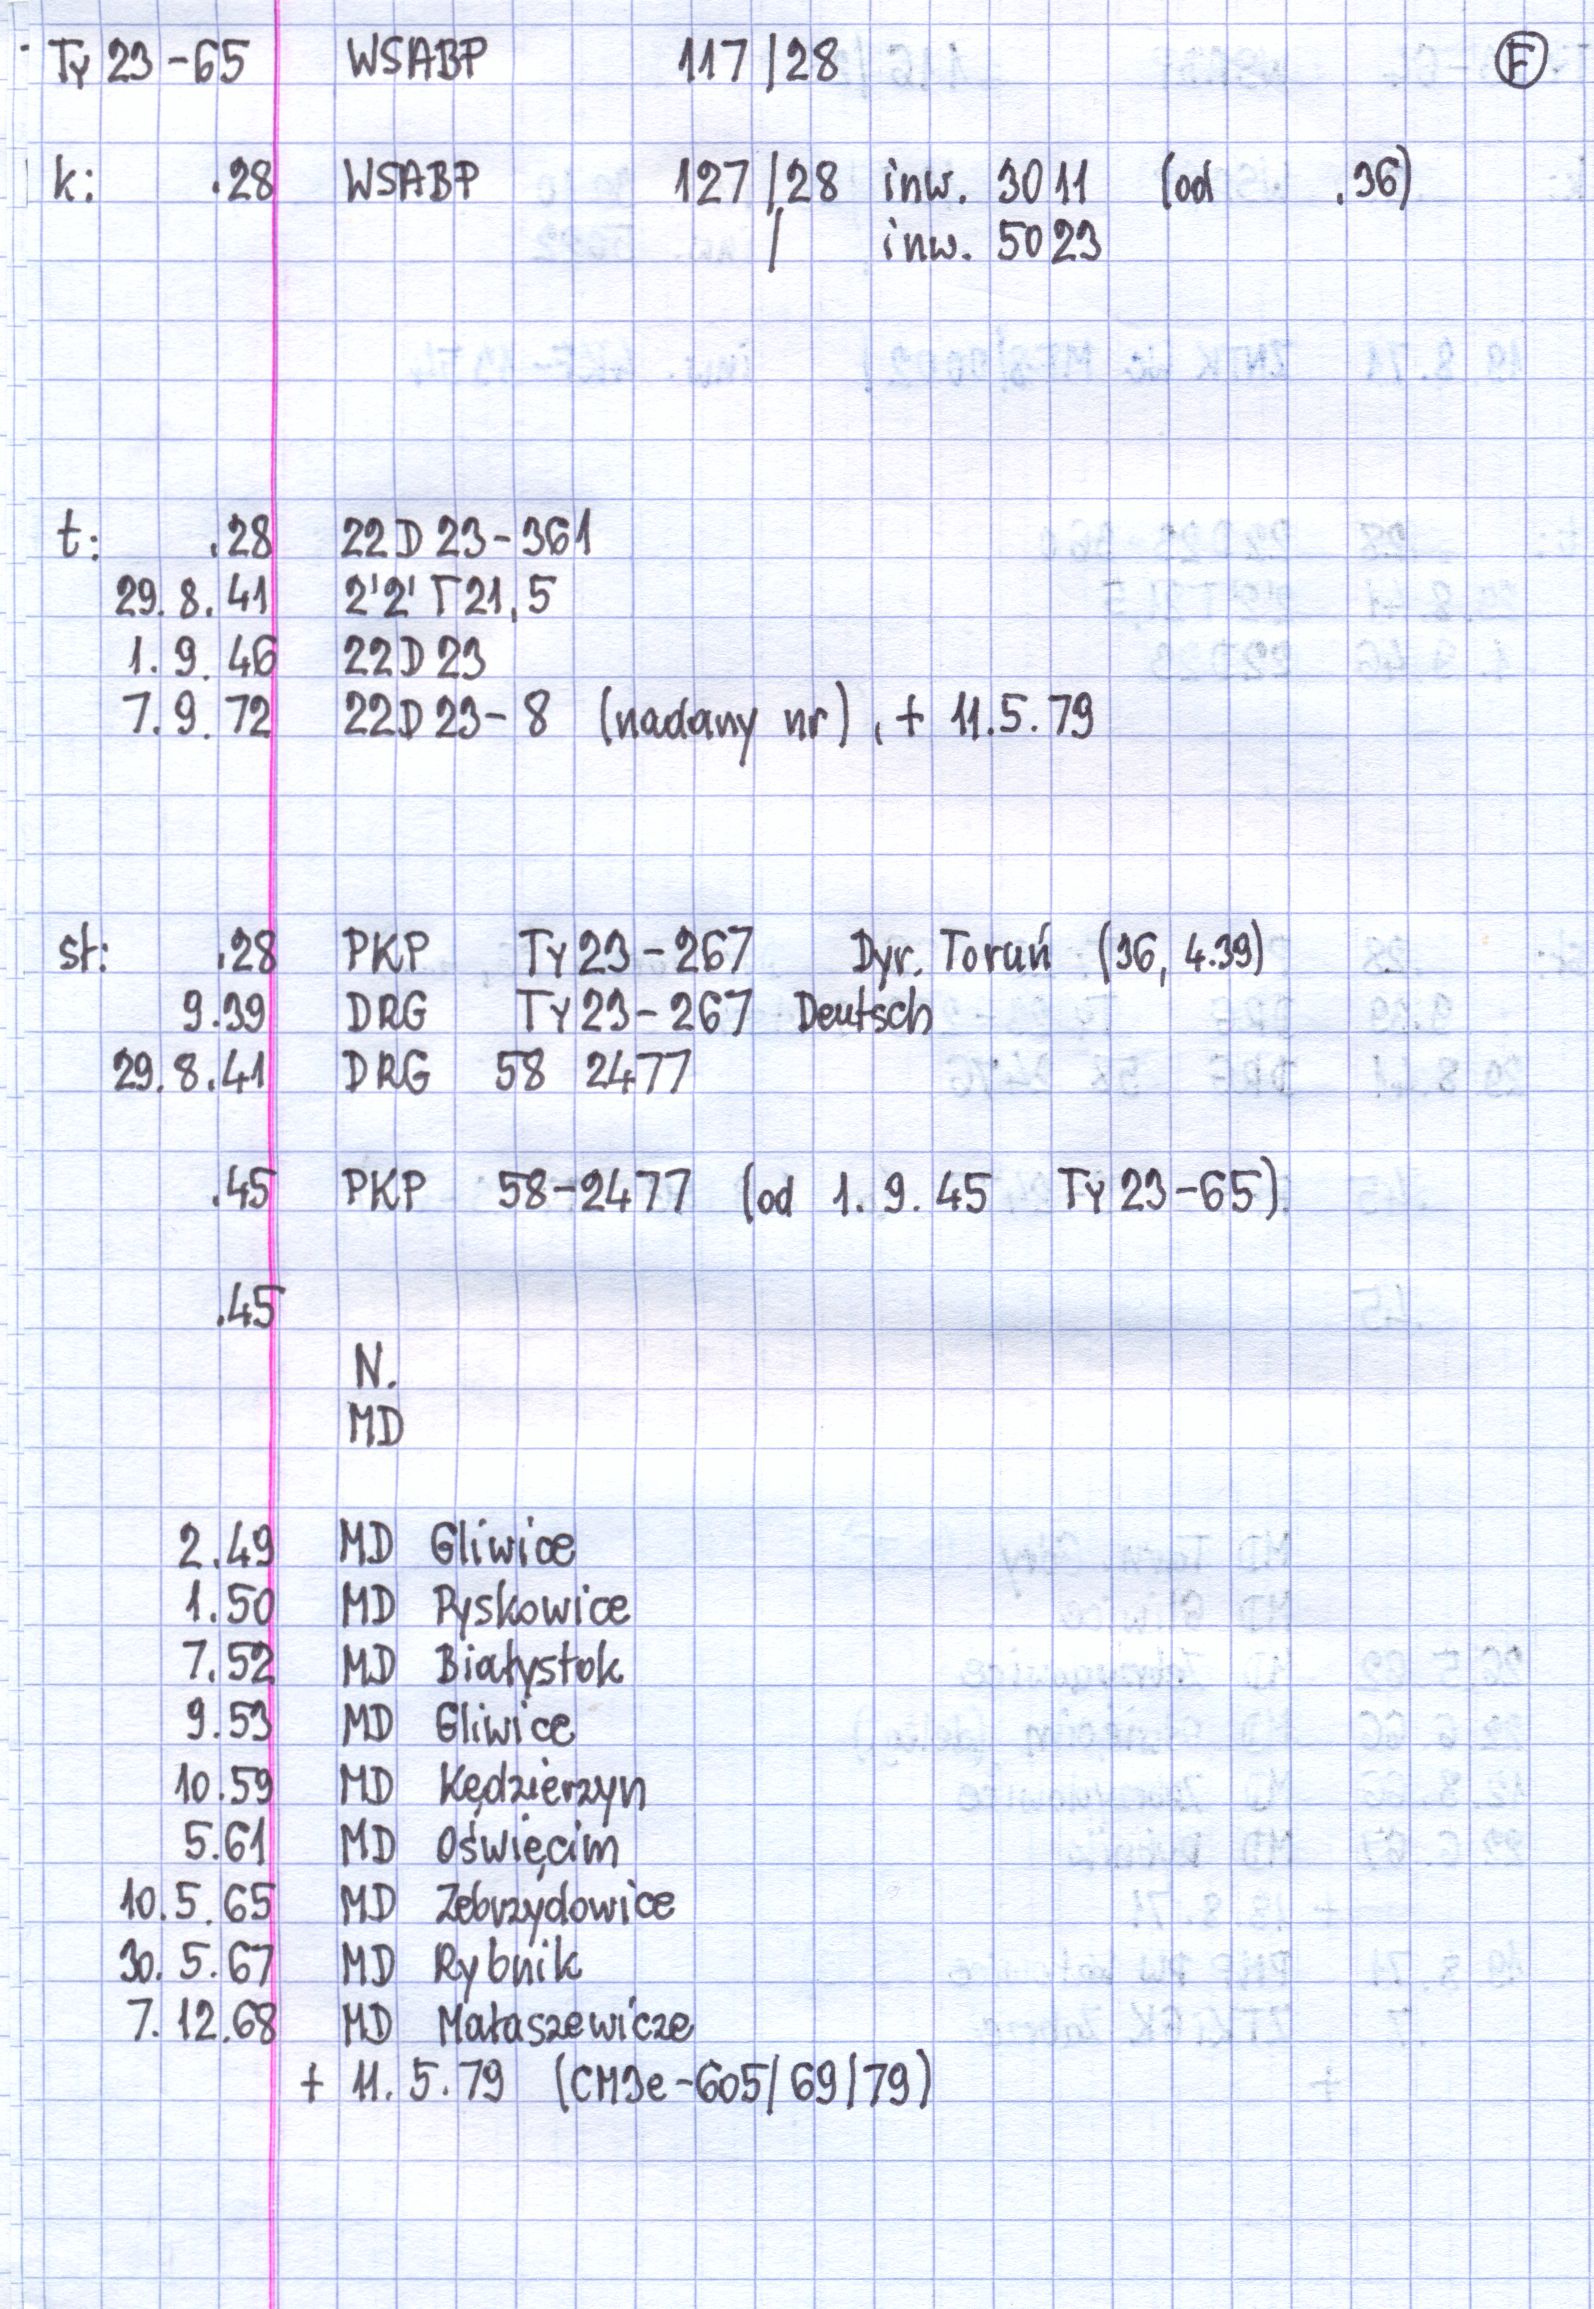 Ty 23-65 WSABP 117/28 F
k: .28 WSABP 127/28 inw. 3011 (od .36)
/ inw. 5023
t: .28 22D23-361
29.8.41 2'2' T 21,5
1.9.46 22D23
7.9.72 22D23-8 (nadany nr), + 11.5.79
st: .28 PKP Ty23-267 Dyr. Toruń (36, 4.39)
9.39 DRG Ty23-267 Deutsch
29.8.41 DRG 58 2477
.45 PKP 58-2477 (od 1.9.45 Ty23-65)
.45
N.
MD
2.49 MD Gliwice
1.50 MD Pyskowice
7.52 MD Białystok
9.53 MD Gliwice
10.59 MD Kędzierzyn
5.61 MD Oświęcim
10.5.65 MD Zebrzydowice
30.5.67 MD Rybnik
7.12.68 MD Małaszewicze
+ 11.5.79 (CM3e-605/69/79)